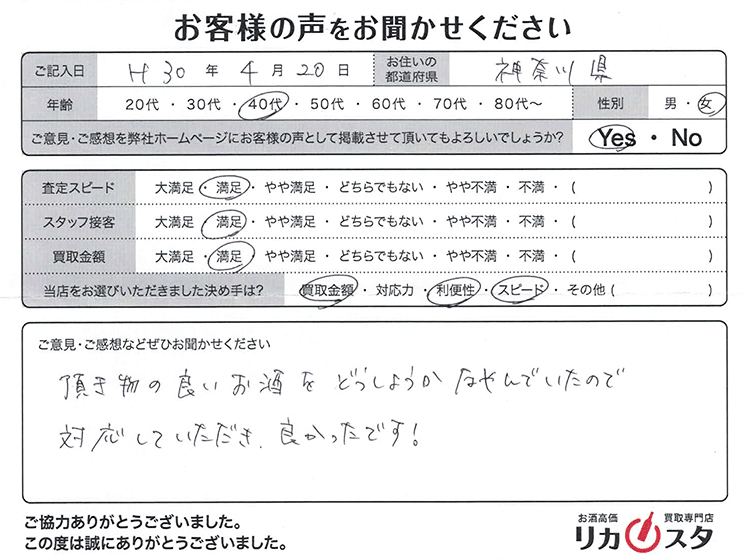 お客様の声をお聞かせください
ご記入日 H30年4月20日 お住いの都道府県 神奈川県
年齢 20代・30代・40代・50代・60代・70代・80代～ 性別 男・女
ご意見・ご感想を弊社ホームページにお客様の声として掲載させて頂いてもよろしいでしょうか? Yes・No
査定スピード 大満足・満足・やや満足・どちらでもない・やや不満・不満・( )
スタッフ接客 大満足・満足・やや満足・どちらでもない・やや不満・不満・( )
買取金額 大満足・満足・やや満足・どちらでもない・やや不満・不満・( )
当店をお選びいただきました決め手は? 買取金額・対応力・利便性・スピード・その他( )
ご意見・ご感想などぜひお聞かせください
頂き物の良いお酒をどうしようかなやんでいたので
対応していただき、良かったです!
ご協力ありがとうございました。
この度は誠にありがとうございました。
お酒高価 買取専門店
リカスタ